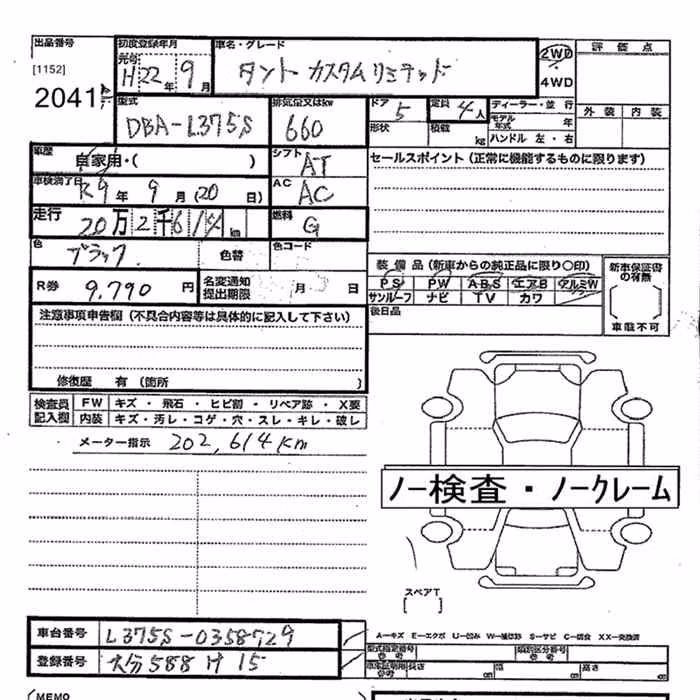 出品番号 初度登録年月 車名・グレード 評価点
[1152] 元号 H22年 9月 タント カスタムリミテッド 2WD
2041 4WD
型式 排気量又はkw ドア 5 定員 4人 ディーラー・並行 外装 内装
DBA-L375S 660 形状 積載 kg モデル年式 年
ハンドル 左・右
車歴 自家用・( ) シフト AT セールスポイント(正常に機能するものに限ります)
車検満了日 R9年 9月(20日) AC AC
走行 20万2千6 km 燃料 G
色 ブラック 色替 色コード
装備品(新車からの純正品に限り○印) 新車保証書の有無
R券 9,790円 名変通知提出期限 月 日 PS PW ABS エアB アルミW
サンルーフ ナビ TV カワ
後日品 車庫不可
注意事項申告欄(不具合内容等は具体的に記入して下さい)
修復歴 有(箇所 )
検査員記入欄 FW キズ・飛石・ヒビ割・リペア跡・X要
内装 キズ・汚レ・コゲ・穴・スレ・キレ・破レ
メーター指示 202,614km
ノー検査・ノークレーム
スペアT
[ ]
車台番号 L375S-0358729 A—キズ E—エクボ U—凹み W—補修跡 S—サビ C—腐食 XX—交換済
型式指定番号 類別区分番号
登録番号 大分588 け 15 長さ cm 幅 cm 高さ cm
MEMO